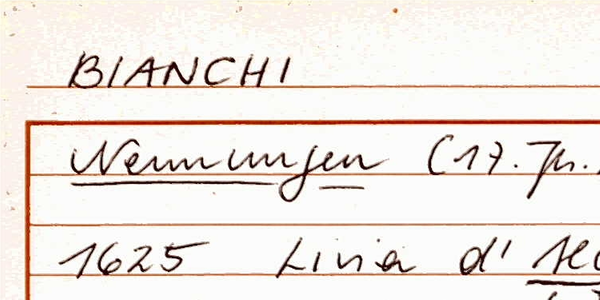 BIANCHI
Nennungen (17. Jh.
1625 Livia d'